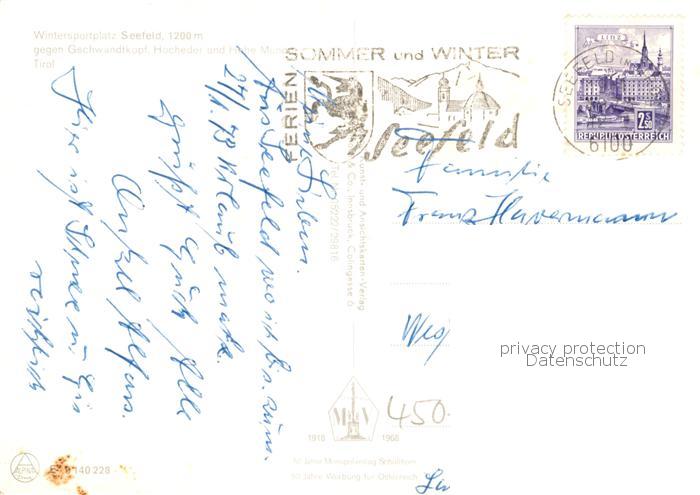 Wintersportplatz Seefeld, 1200 m
gegen Gschwandtkopf, Hocheder und Hohe Munde
Tirol
FERIEN
SOMMER und WINTER
Seefeld
LINZ
2.50
REPUBLIK ÖSTERREICH
SEEFELD IN
6100
Meine Lieben.
Aus Seefeld wo ich bis zum
27/1 73 Urlaub mache.
grüßt Euch Alle
Onkel Alfons.
Hier ist Schnee u. Eis
reichlich
Familie
Franz Havermann
Weg
privacy protection
Datenschutz
Kunst- und Ansichtskarten-Verlag
Co., Innsbruck, Colingasse
1918 1968
450.
50 Jahre Werbung für Österreich
140 228